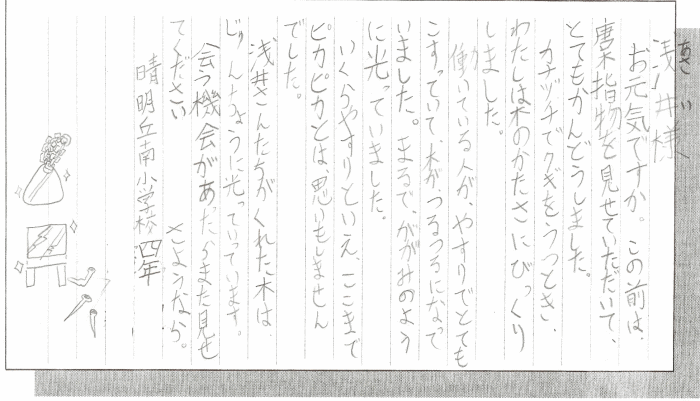 浅井様
あさい
お元気ですか。この前は、
唐木指物を見せていただいて、
とてもかんどうしました。
カナヅチでクギをうつとき、
わたしは木のかたさにびっくり
しました。
働いている人が、やすりでとても
こすっていて、木が、つるつるになって
いました。まるで、かがみのよう
に光っていました。
いくらやすりといえ、ここまで
ピカピカとは、思いもしません
でした。
浅井さんたちがくれた木は、
じゅんちょうに光っていっています。
会う機会があったらまた見せ
てください。さようなら。
晴明丘南小学校 四年